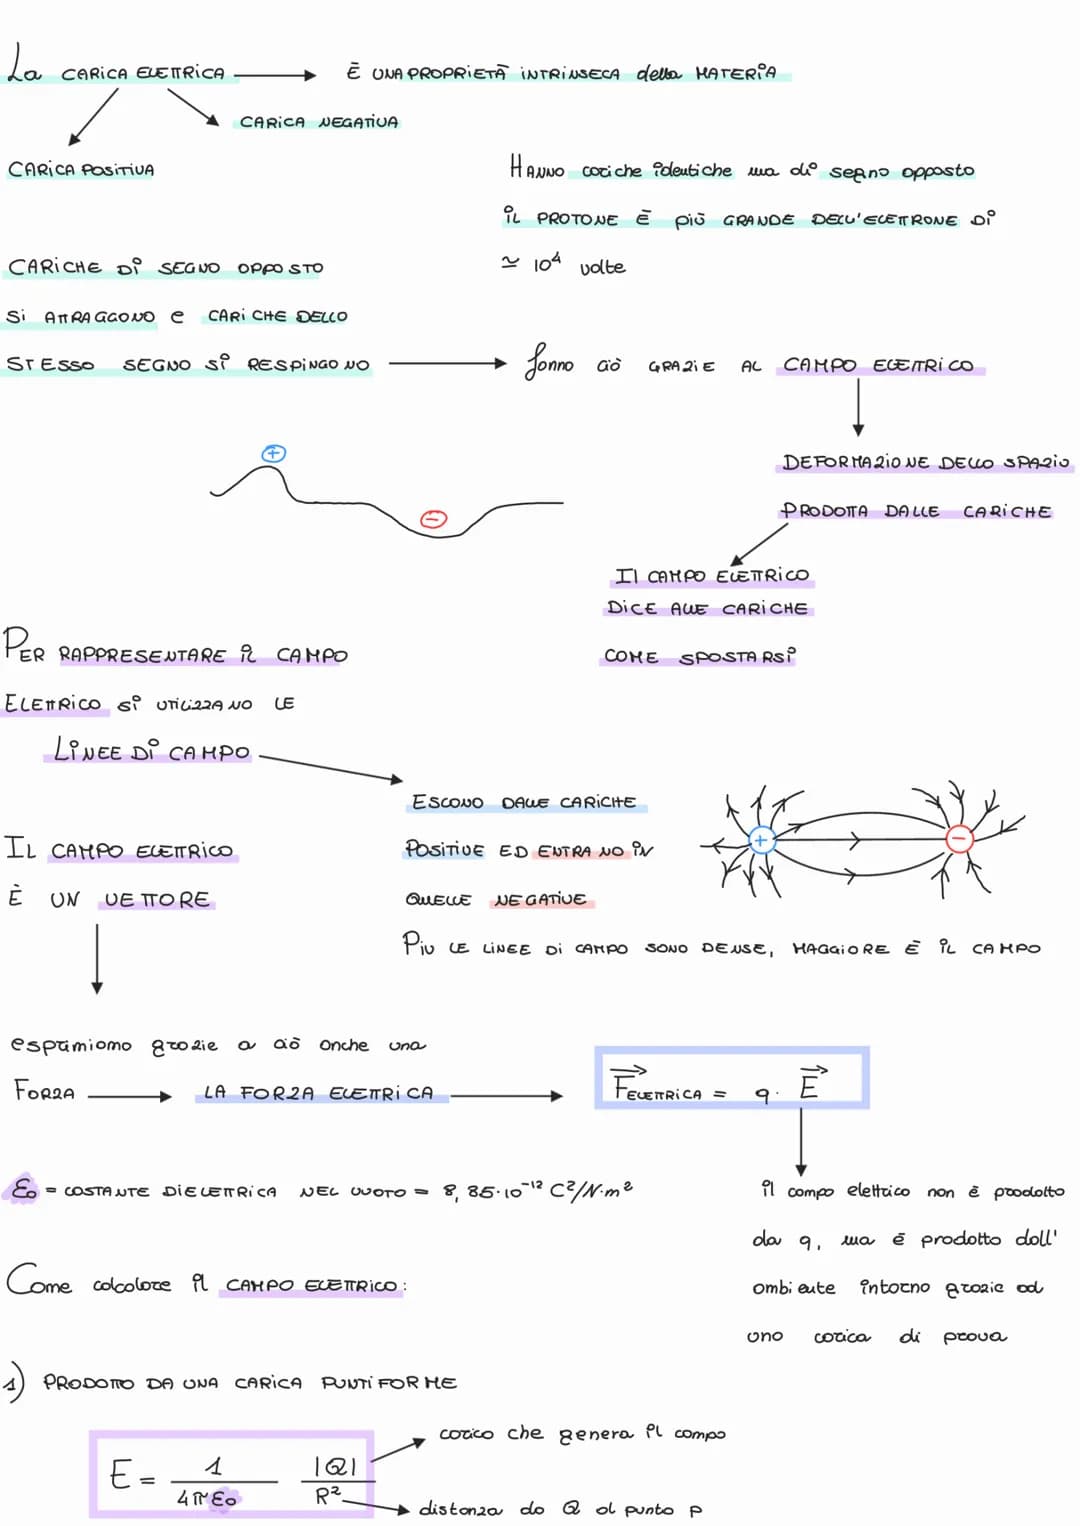 La CARICA ELETTRICA → È UNA PROPRIETÀ INTRINSECA della MATERIA
CARICA NEGATIVA
CARICA POSITIVA
HANNO cariche identiche ma di segno opposto
IL PROTONE È più GRANDE DELL'ELETTRONE DI
≃ 10⁴ volte
CARICHE DI SEGNO OPPOSTO
SI ATTRAGGONO e CARICHE DELLO
STESSO SEGNO SI RESPINGONO → fanno ciò GRAZIE AL CAMPO ELETTRICO
+
DEFORMAZIONE DELLO SPAZIO
PRODOTTA DALLE CARICHE
−
Il CAMPO ELETTRICO
DICE ALLE CARICHE
COME SPOSTARSI
PER RAPPRESENTARE IL CAMPO
ELETTRICO SI UTILIZZANO LE
LINEE DI CAMPO
ESCONO DALLE CARICHE
POSITIVE ED ENTRANO IN
QUELLE NEGATIVE
+ −
PIU LE LINEE DI CAMPO SONO DENSE, MAGGIORE È IL CAMPO
IL CAMPO ELETTRICO
È UN VETTORE
esprimiamo grazie a ciò anche una
FORZA → LA FORZA ELETTRICA → F⃗ELETTRICA = q · E⃗
ε₀ = COSTANTE DIELETTRICA NEL VUOTO = 8,85·10⁻¹² C²/N·m²
il campo elettrico non è prodotto
da q, ma è prodotto dall'
ambiente intorno grazie ad
una carica di prova
Come calcolare il CAMPO ELETTRICO:
1) PRODOTTO DA UNA CARICA PUNTIFORME
E = 1/4πε₀ |Q|/R²
carica che genera il campo
distanza da Q al punto P